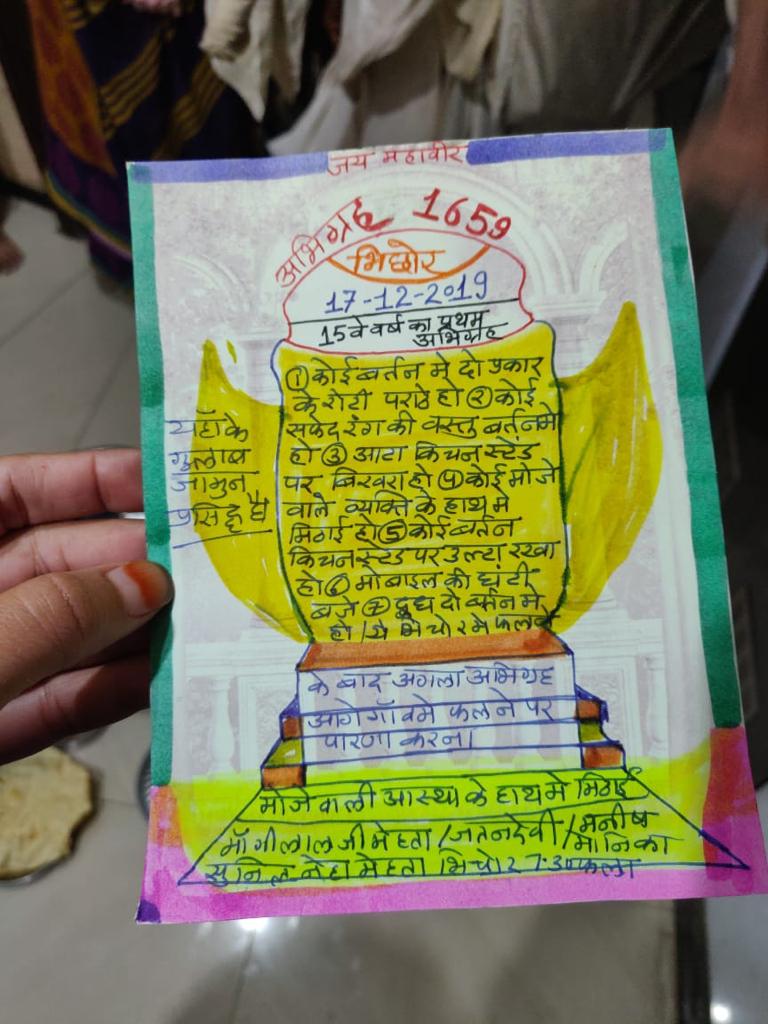 जय महावीर
अभिग्रह 1659
भिछोर
17-12-2019
15 वे वर्ष का प्रथम
अभिग्रह
① कोई बर्तन मे दो प्रकार
के रोटी पराठे हो ② कोई
सफेद रंग की वस्तु बर्तन मे
हो ③ आटा किचन स्टेंड
पर बिखरा हो ④ कोई मोजे
वाले व्यक्ति के हाथ मे
मिठाई हो ⑤ कोई बर्तन
किचन स्टेंड पर उल्टा रखा
हो ⑥ मोबाइल की घंटी
बजे ⑦ दुध दो बर्तन मे
हो / ये भिचोर मे फलने
के बाद अगला अभिग्रह
आगे गाँव मे फलने पर
पारणा करना।
यहाँ के
गुलाब
जामुन
प्रसिद्ध है
मोजे वाली आस्था के हाथ मे मिठाई
माँगीलाल जी मेहता / जतनदेवी / मनीष
मोनिका
सुनिल नेहा मेहता भिचोर 7:30 फला